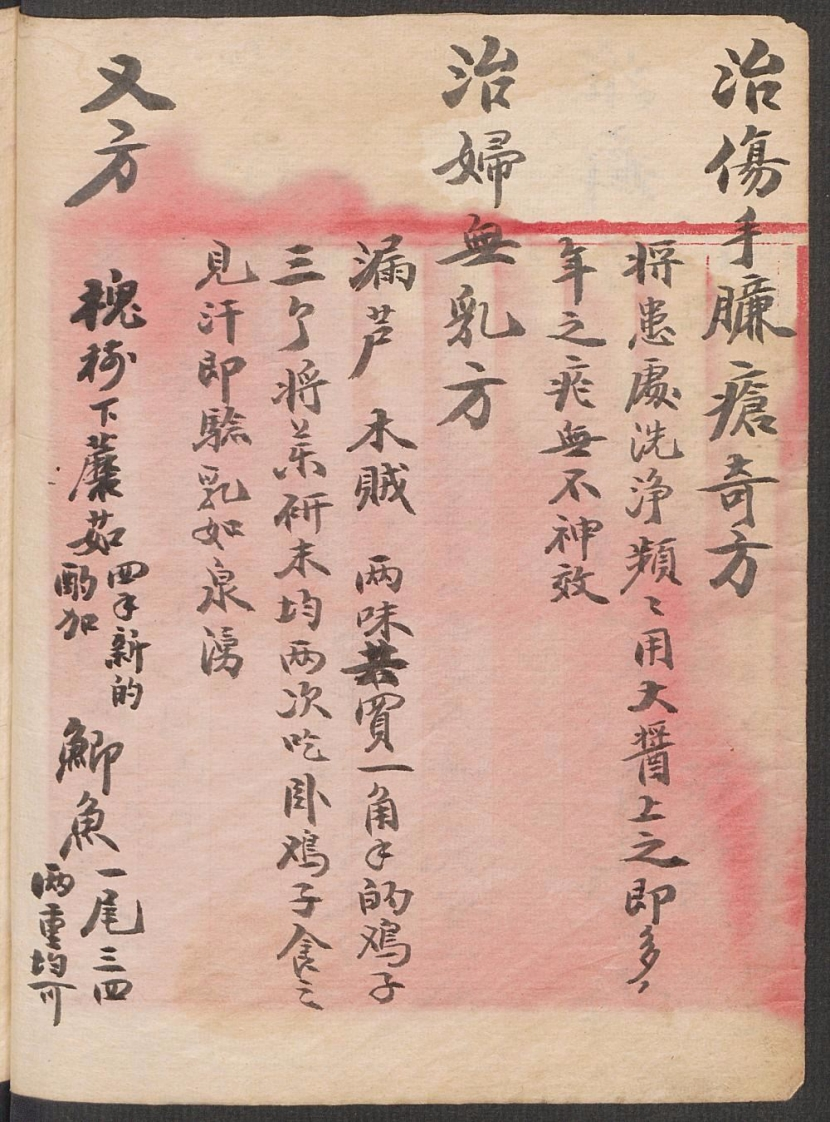 治傷手臁瘡奇方
將患處洗淨頻〻用大醬上之即多
年之瘡無不神效
治婦無乳方
漏芦 木賊 两味共買一角手的鸡子
三个将药研末均两次吃卧鸡子食之
見汗即騐乳如泉湧
又方
槐树下蘑茹
四手新的
酌加
鯽魚一尾
三四
两重均可